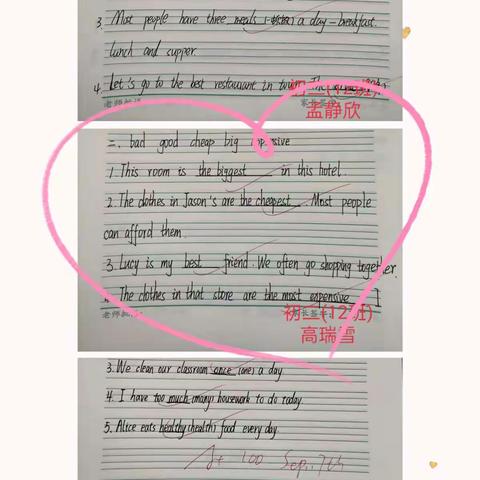 3. Most people have three meals (一餐) a day - breakfast.
lunch and cupper.
4. Let's go to the best restaurant in town. The
初二(12班)
孟静欣
二. bad good cheap big expensive
1. This room is the biggest in this hotel.
2. The clothes in Jason's are the cheapest. Most people
can afford them.
3. Lucy is my best friend. We often go shopping together.
4. The clothes in that store are the most expensive
初二(12班)
高瑞雪
3. We clean our classroom once (one) a day.
4. I have too much (many) housework to do today.
5. Alice eats healthy (health) food every day.
A+ 100 Sep. 7th